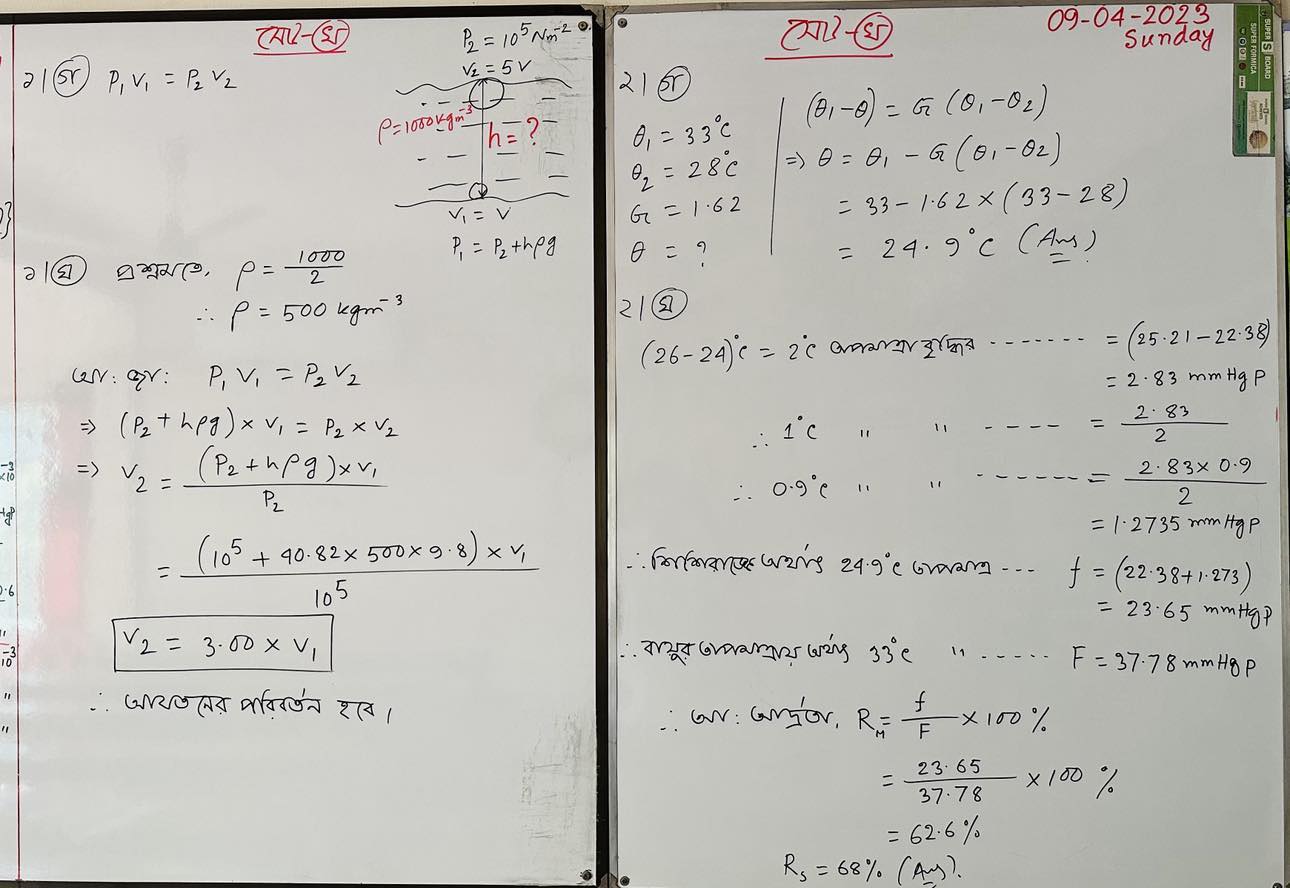 সেট-খ
P₂ = 10⁵ Nm⁻²
V₂ = 5V
১। গ P₁V₁ = P₂V₂
ρ = 1000 kgm⁻³
h = ?
V₁ = V
P₁ = P₂ + hρg
১। ঘ প্রশ্নমতে, ρ = 1000/2
∴ ρ = 500 kgm⁻³
P₁V₁ = P₂V₂
⇒ (P₂ + hρg) × V₁ = P₂ × V₂
⇒ V₂ = (P₂ + hρg) × V₁ / P₂
= (10⁵ + 40.82 × 500 × 9.8) × V₁ / 10⁵
V₂ = 3.00 × V₁
∴ আয়তনের পরিবর্তন হবে।
সেট-খ
09-04-2023
Sunday
SUPER BOARD
SUPER FORMICA
২। গ
θ₁ = 33°c
θ₂ = 28°c
G = 1.62
θ = ?
(θ₁ - θ) = G (θ₁ - θ₂)
⇒ θ = θ₁ - G (θ₁ - θ₂)
= 33 - 1.62 × (33 - 28)
= 24.9°c (Ans)
২। ঘ
(26-24)°c = 2°c তাপমাত্রা বৃদ্ধির ------- = (25.21 - 22.38)
= 2.83 mmHgP
∴ 1°c " " ---- = 2.83/2
∴ 0.9°c " " ------ = 2.83 × 0.9 / 2
= 1.2735 mmHgP
∴ শিশিরাঙ্কে অর্থাৎ 24.9°c তাপমাত্র --- f = (22.38 + 1.273)
= 23.65 mmHgP
∴ বায়ুর তাপমাত্রায় অর্থাৎ 33°c " ----- F = 37.78 mmHgP
∴ আ: আর্দ্রতা, R_M = f/F × 100 %
= 23.65/37.78 × 100 %
= 62.6%
R_s = 68% (Ans).